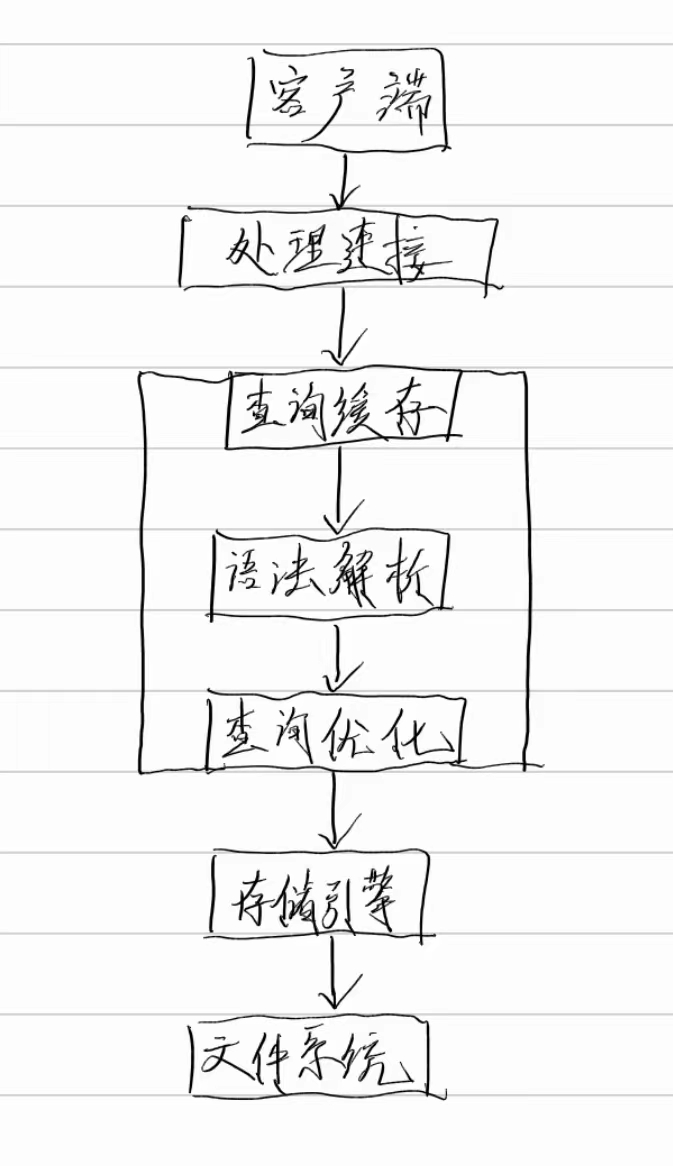 客户端
处理连接
查询缓存
语法解析
查询优化
存储引擎
文件系统